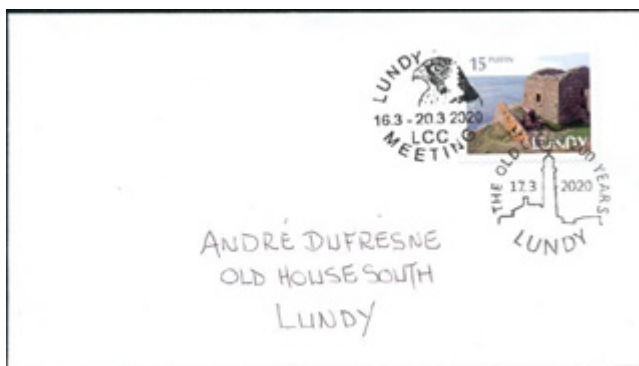 LUNDY
16.3 - 20.3 2020
LCC
MEETING
15 PUFFIN
LUNDY
THE OLD
YEARS
17.3 2020
LUNDY
ANDRÉ DUFRESNE
OLD HOUSE SOUTH
LUNDY